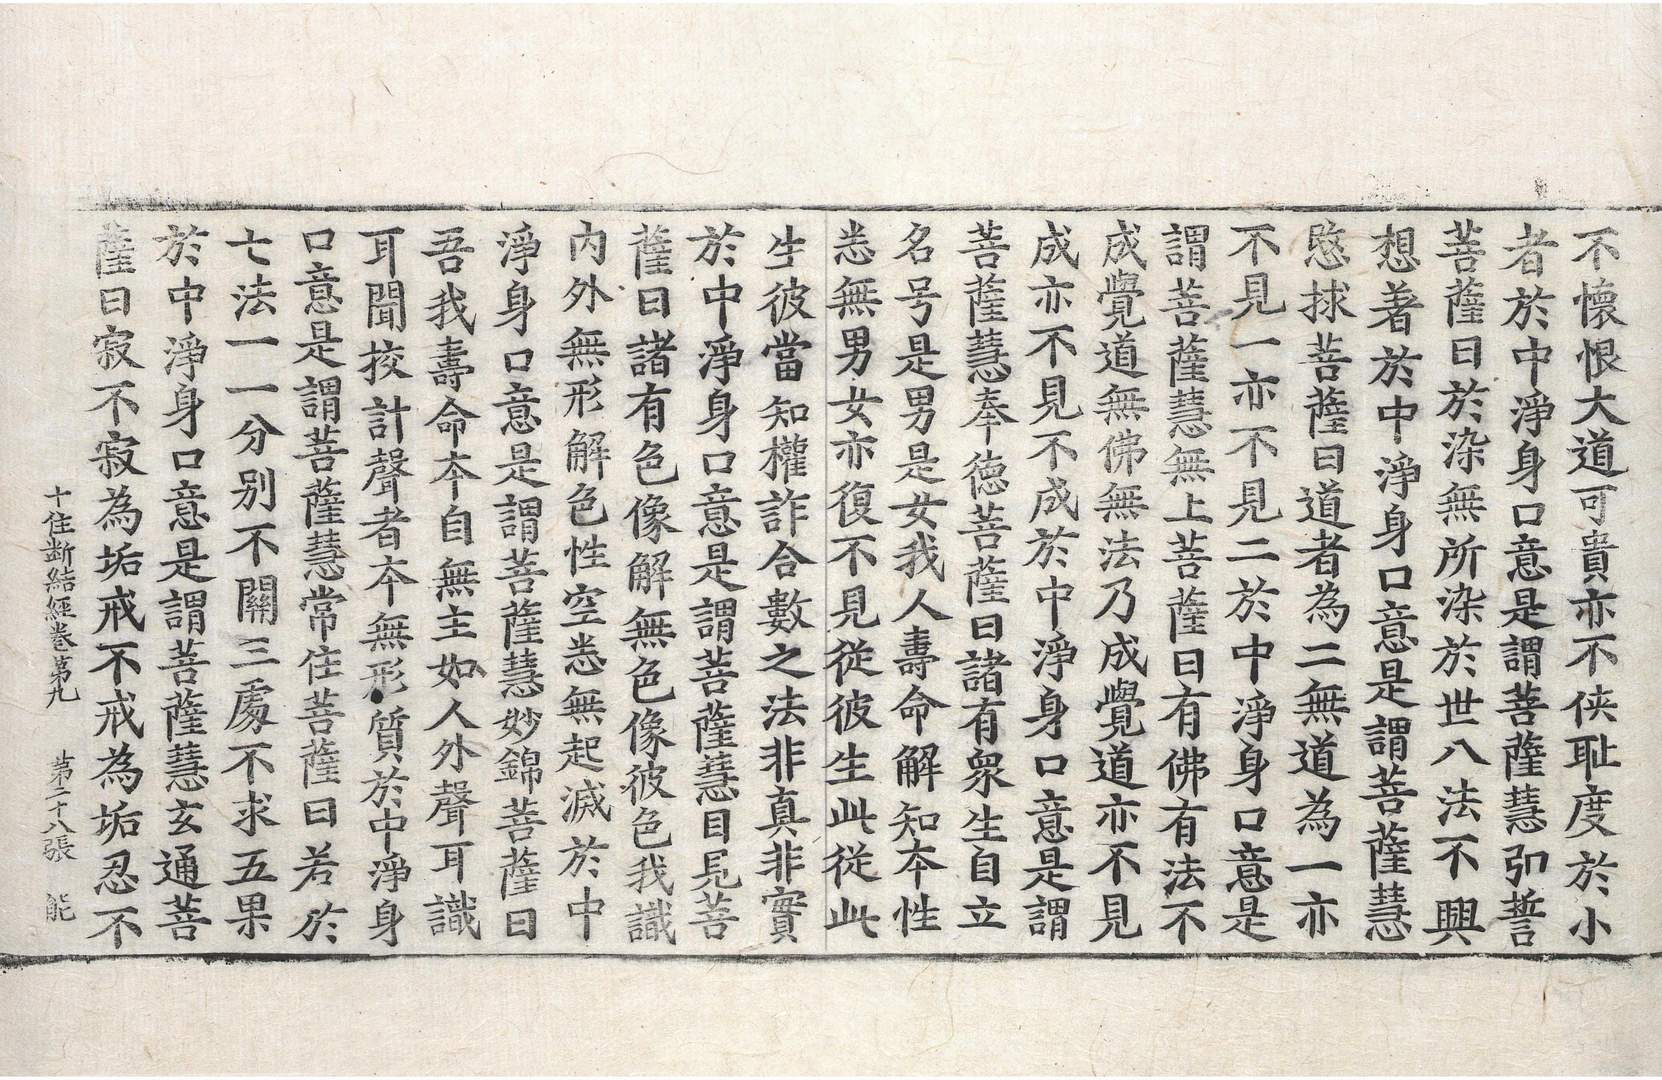 不懷恨大道可貴亦不俠耻度於小
者於中淨身口意是謂菩薩慧弘誓
菩薩曰於染無所染於世八法不興
想著於中淨身口意是謂菩薩慧
愍救菩薩曰道者為二無道為一亦
不見一亦不見二於中淨身口意是
謂菩薩慧無上菩薩曰有佛有法不
成覺道無佛無法乃成覺道亦不見
成亦不見不成於中淨身口意是謂
菩薩慧奉德菩薩曰諸有衆生自立
名号是男是女我人壽命解知本性
悉無男女亦復不見從彼生此從此
生彼當知權詐合數之法非真非實
於中淨身口意是謂菩薩慧目見菩
薩曰諸有色像解無色像彼色我識
內外無形解色性空悉無起滅於中
淨身口意是謂菩薩慧妙錦菩薩曰
吾我壽命本自無主如人外聲耳識
耳聞挍計聲者本無形質於中淨身
口意是謂菩薩慧常住菩薩曰若於
七法一一分別不關三處不求五果
於中淨身口意是謂菩薩慧玄通菩
薩曰寂不寂為垢戒不戒為垢忍不
十住斷結經卷第九　第二十八張　能